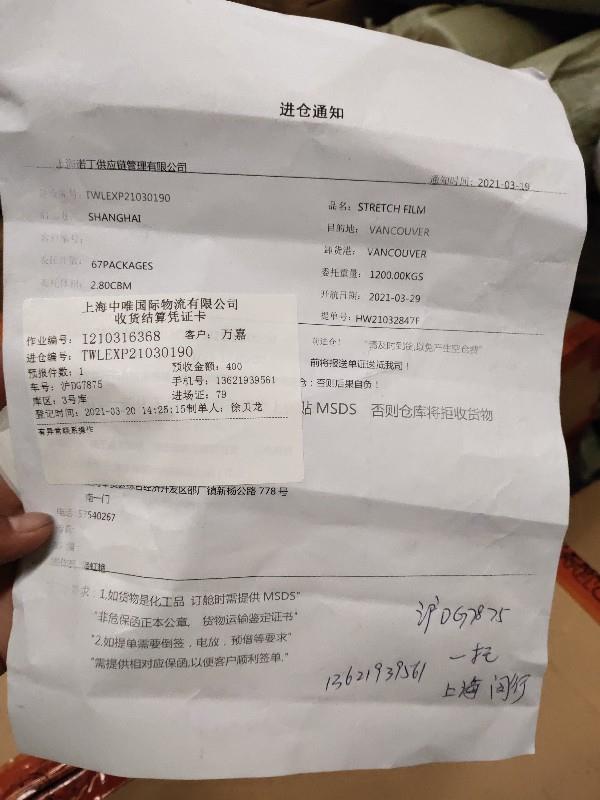 进仓通知
上海诺丁供应链管理有限公司
通知时间：2021-03-19
TWLEXP21030190
品名：STRETCH FILM
SHANGHAI
目的地：VANCOUVER
卸货港：VANCOUVER
67PACKAGES
委托重量：1200.00KGS
2.80CBM
开航日期：2021-03-29
提单号：HW21032847F
上海中唯国际物流有限公司
收货结算凭证卡
作业编号：I210316368 客户：万嘉
进仓编号：TWLEXP21030190
预报件数：1 预收金额：400
车号：沪DG7875 手机号：13621939561
库区：3号库 进场证：79
登记时间：2021-03-20 14:25:15制单人：徐贝龙
有异常联系操作
前进仓！ "需及时到仓,以免产生空仓费"
前将报送单证送抵我司！
：否则后果自负！
贴 MSDS 否则仓库将拒收货物
综合经济开发区邵厂镇新杨公路 778 号
南一门
电话：57540267
要求：1.如货物是化工品 订舱时需提供 MSDS"
"非危保函正本公章， 货物运输鉴定证书"
"2.如提单需要倒签，电放，预借等要求"
"需提供相对应保函,以便客户顺利签单."
沪DG7875
13621939561
上海 闵行